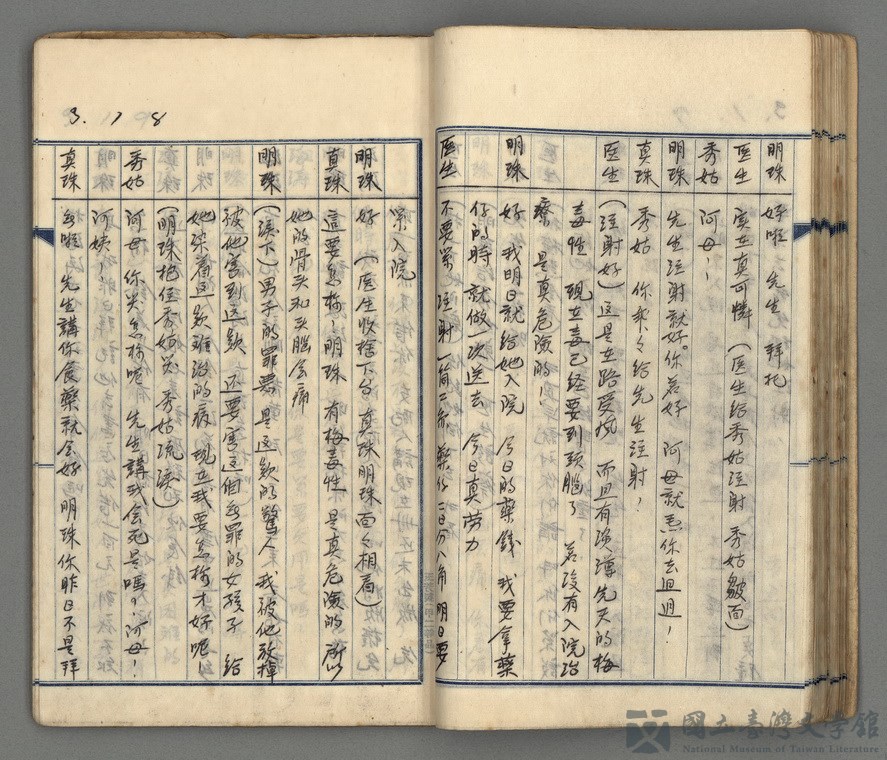 明珠 好啦! 先生 拜托
医生 实在真可憐 (医生給秀姑注射 秀姑皺面)
秀姑 阿母!!
明珠 先生注射就好。你若好 阿母就焄你去𨑨迌!
真珠 秀姑 你乖々給先生注射!
医生 (注射好) 這是在路受
而且有遺傳先天的梅
毒性 現在毒已経要到頭腦了 若沒有入院治
療 是真危險的!
明珠 好 我明日就給她入院 今日的藥錢 我要拿藥
仔的時 就做一次送去 今日真勞力
医生 不要緊 注射一筒二 藥仔二日份八角 明日要
緊入院
明珠 好 (医生收捨下台 真珠明珠面々相看)
真珠 這要怎樣! 明珠 有梅毒性 是真危險的 所以
她的骨头和头腦会痛
明珠 (淚下) 男子的罪悪 是這款的驚人 我被他放掉
被他害到這款 还要害這個無罪的女孩子 給
她染着這款难治的病 現在我要怎樣才好呢
(明珠抱住秀姑哭 秀姑流淚)
秀姑 阿母 你哭怎樣呢 先生講我会死是嗎? 阿母!
阿姨!!
真珠 無啦 先生講你食藥就会好 明珠你昨日不是拜
3. 1 8
國立臺灣文學館
National Museum of Taiwan Literature